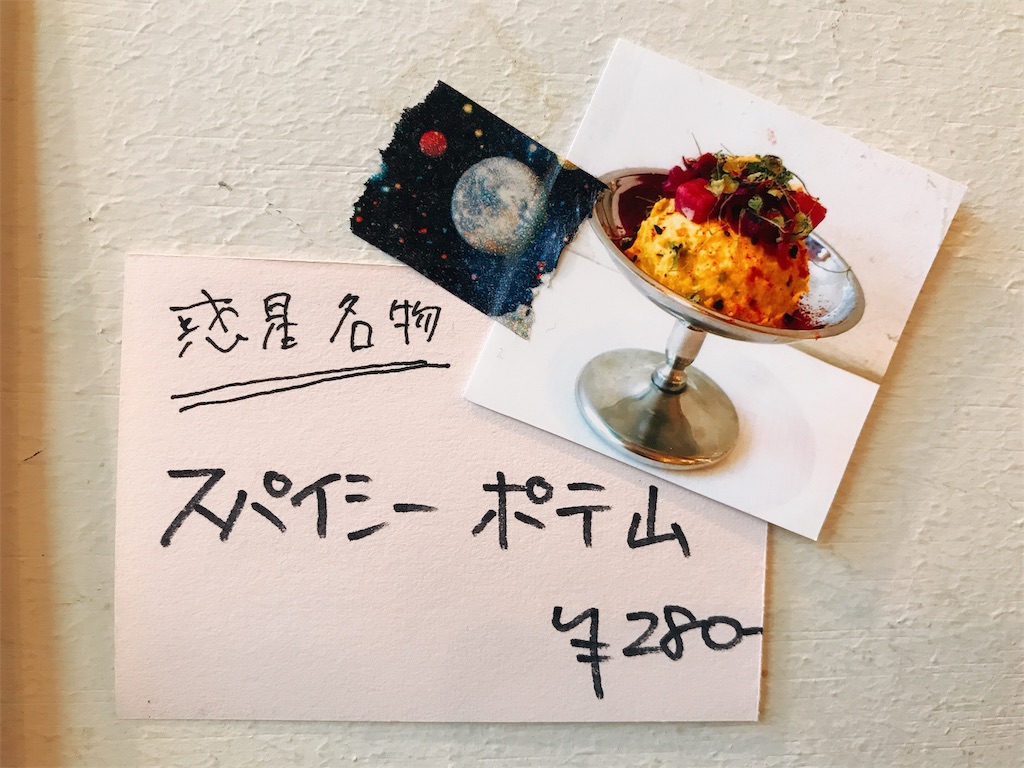 惑星名物
スパイシー ポテ山
¥280-